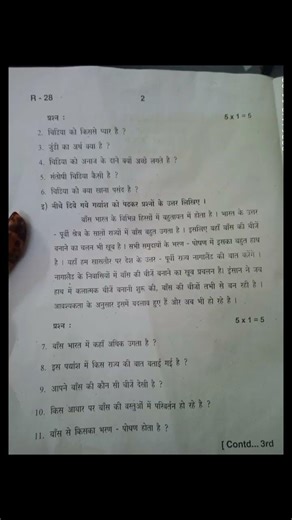 R - 28
2
प्रश्न :
5 x 1 = 5
2. चिडिया को किससे प्यार है ?
3. जुंडी का अर्थ क्या है ?
4. चिडिया को अनाज के दाने क्यों अच्छे लगते है ?
5. संतोषी चिडिया कैसी है ?
6. चिडिया को क्या खाना पसंद है ?
इ) नीचे दिये गये गद्यांश को पढकर प्रश्नों के उत्तर लिखिए ।
बाँस भारत के विभिन्न हिस्सों में बहुतायत में होता है । भारत के उत्तर
- पूर्वी क्षेत्र के सातों राज्यों में बाँस बहुत उगता है । इसलिए वहाँ बाँस की चीजें
बनाने का चलन भी खूब है । सभी समुदायों के भरण - पोषण में इसका बहुत हाथ
है । यहाँ हम खासतौर पर देश के उत्तर - पूर्वी राज्य नागालैंड की बात करेंगे ।
नागालैंड के निवासियों में बाँस की चीजें बनाने का खूब प्रचलन है। इंसान ने जब
हाथ से कलात्मक चीजें बनानी शुरू की, बाँस की चीजें तभी से बन रही है ।
आवश्यकता के अनुसार इसमें बदलाव हुए हैं और अब भी हो रहे है ।
प्रश्न :
5 x 1 = 5
7. बाँस भारत में कहाँ अधिक उगता है ?
8. इस गद्यांश में किस राज्य की बात बताई गई है ?
9. आपने बाँस की कौन सी चीजें देखी है ?
10. किस आधार पर बाँस की वस्तुओं में परिवर्तन हो रहे है ?
11. बाँस से किसका भरण - पोषण होता है ?
[ Contd... 3rd